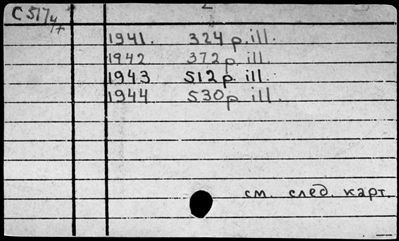 2
1941. 324 p. ill.
1942 372 p. ill.
1943 512 p ill.
1944 530 p ill.
см. след. карт.